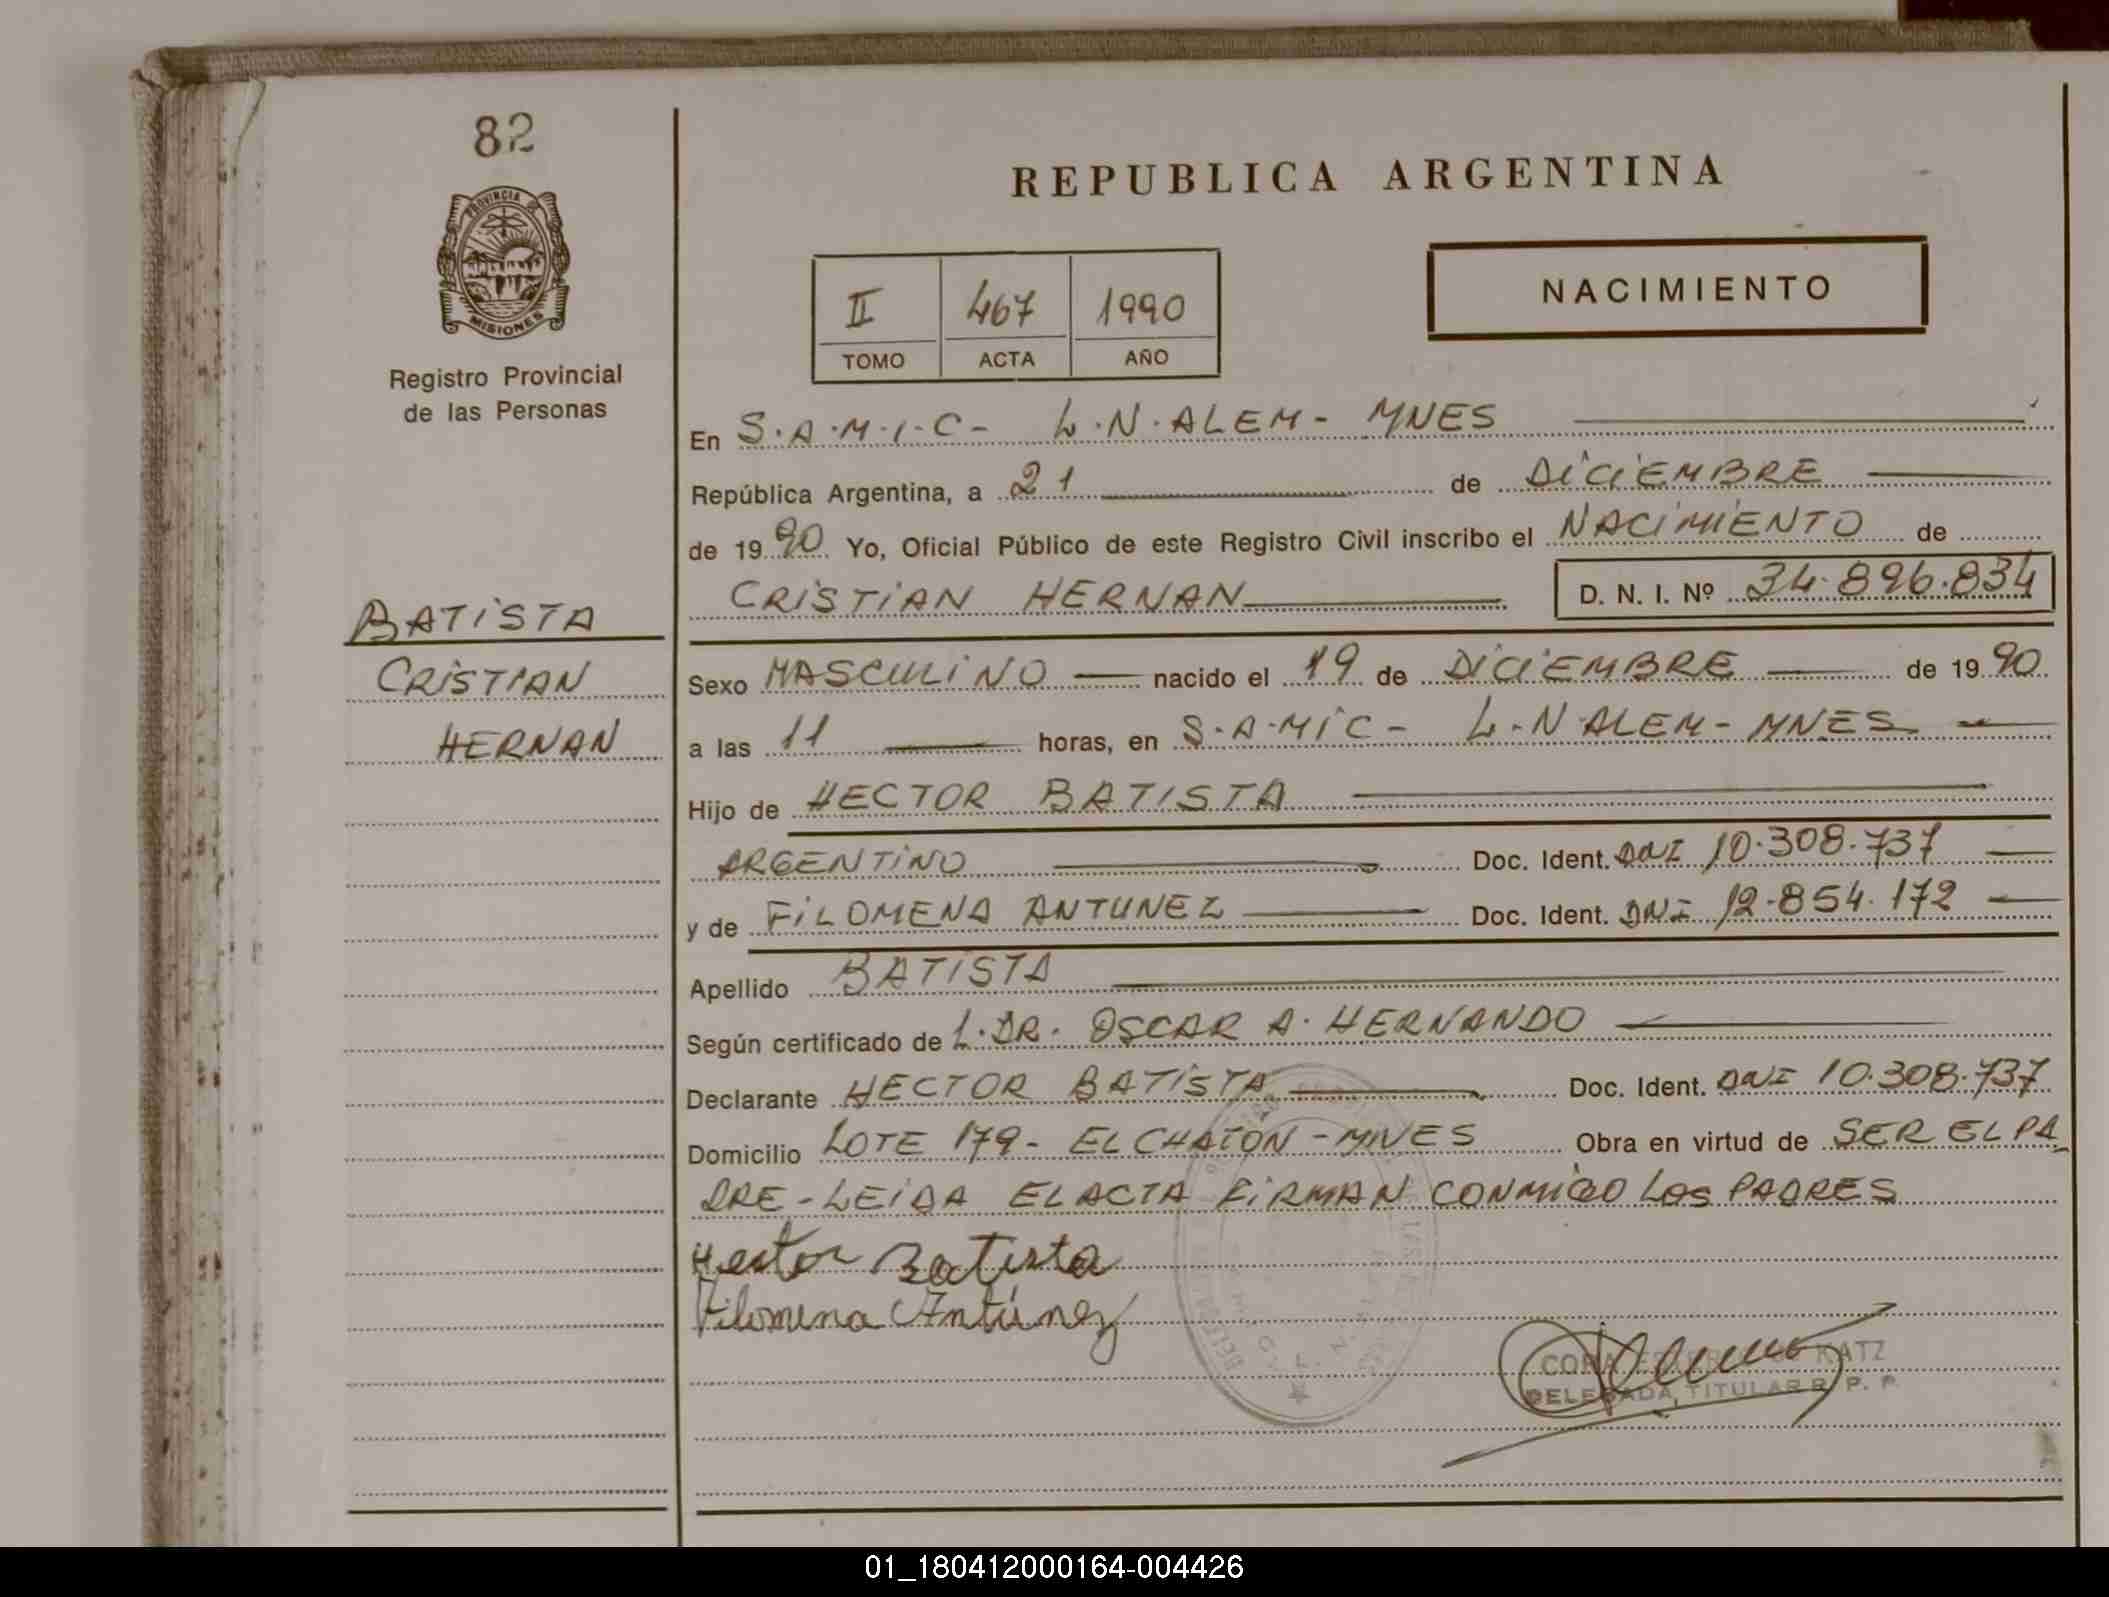 82
PROVINCIA DE
MISIONES
Registro Provincial
de las Personas
BATISTA
CRISTIAN
HERNAN
REPUBLICA ARGENTINA
II 467 1990
TOMO ACTA AÑO
NACIMIENTO
En S.A.M.I.C- L.N.ALEM- MNES
República Argentina, a 21 de DICIEMBRE
de 1990 Yo, Oficial Público de este Registro Civil inscribo el NACIMIENTO de
CRISTIAN HERNAN D. N. I. Nº 34.896.834
Sexo MASCULINO nacido el 19 de DICIEMBRE de 1990
a las 11 horas, en S.A.MIC- L.N ALEM- MNES
Hijo de HECTOR BATISTA
ARGENTINO Doc. Ident. DNI 10.308.737
y de FILOMENA ANTUNEZ Doc. Ident. DNI 12.854.172
Apellido BATISTA
Según certificado de L. DR. OSCAR A. HERNANDO
Declarante HECTOR BATISTA Doc. Ident. DNI 10.308.737
Domicilio LOTE 179- EL CHATON - MNES Obra en virtud de SER EL PA
DRE - LEIDA EL ACTA FIRMAN CONMIGO LOS PADRES
Hector Batista
Filomena Antúnez
KATZ
DELEGADA TITULAR R. P. P.
01_180412000164-004426